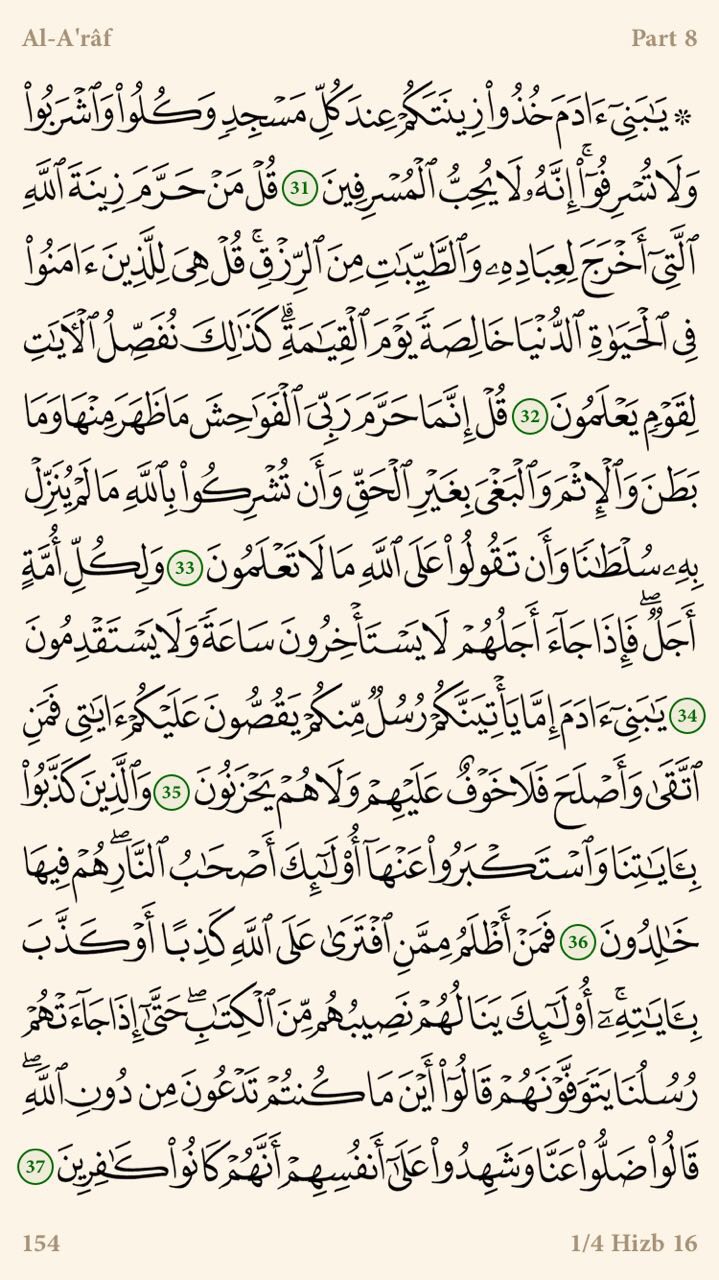 Al-A'râf Part 8
۞ يَـٰبَنِىٓ ءَادَمَ خُذُوا۟ زِينَتَكُمْ عِندَ كُلِّ مَسْجِدٍ وَكُلُوا۟ وَٱشْرَبُوا۟
وَلَا تُسْرِفُوٓا۟ ۚ إِنَّهُۥ لَا يُحِبُّ ٱلْمُسْرِفِينَ 31 قُلْ مَنْ حَرَّمَ زِينَةَ ٱللَّهِ
ٱلَّتِىٓ أَخْرَجَ لِعِبَادِهِۦ وَٱلطَّيِّبَـٰتِ مِنَ ٱلرِّزْقِ ۚ قُلْ هِىَ لِلَّذِينَ ءَامَنُوا۟
فِى ٱلْحَيَوٰةِ ٱلدُّنْيَا خَالِصَةً يَوْمَ ٱلْقِيَـٰمَةِ ۗ كَذَٰلِكَ نُفَصِّلُ ٱلْـَٔايَـٰتِ
لِقَوْمٍ يَعْلَمُونَ 32 قُلْ إِنَّمَا حَرَّمَ رَبِّىَ ٱلْفَوَٰحِشَ مَا ظَهَرَ مِنْهَا وَمَا
بَطَنَ وَٱلْإِثْمَ وَٱلْبَغْىَ بِغَيْرِ ٱلْحَقِّ وَأَن تُشْرِكُوا۟ بِٱللَّهِ مَا لَمْ يُنَزِّلْ
بِهِۦ سُلْطَـٰنًا وَأَن تَقُولُوا۟ عَلَى ٱللَّهِ مَا لَا تَعْلَمُونَ 33 وَلِكُلِّ أُمَّةٍ
أَجَلٌ ۖ فَإِذَا جَآءَ أَجَلُهُمْ لَا يَسْتَأْخِرُونَ سَاعَةً وَلَا يَسْتَقْدِمُونَ
34 يَـٰبَنِىٓ ءَادَمَ إِمَّا يَأْتِيَنَّكُمْ رُسُلٌ مِّنكُمْ يَقُصُّونَ عَلَيْكُمْ ءَايَـٰتِى فَمَنِ
ٱتَّقَىٰ وَأَصْلَحَ فَلَا خَوْفٌ عَلَيْهِمْ وَلَا هُمْ يَحْزَنُونَ 35 وَٱلَّذِينَ كَذَّبُوا۟
بِـَٔايَـٰتِنَا وَٱسْتَكْبَرُوا۟ عَنْهَآ أُو۟لَـٰٓئِكَ أَصْحَـٰبُ ٱلنَّارِ ۖ هُمْ فِيهَا
خَـٰلِدُونَ 36 فَمَنْ أَظْلَمُ مِمَّنِ ٱفْتَرَىٰ عَلَى ٱللَّهِ كَذِبًا أَوْ كَذَّبَ
بِـَٔايَـٰتِهِۦٓ ۚ أُو۟لَـٰٓئِكَ يَنَالُهُمْ نَصِيبُهُم مِّنَ ٱلْكِتَـٰبِ ۖ حَتَّىٰٓ إِذَا جَآءَتْهُمْ
رُسُلُنَا يَتَوَفَّوْنَهُمْ قَالُوٓا۟ أَيْنَ مَا كُنتُمْ تَدْعُونَ مِن دُونِ ٱللَّهِ ۖ
قَالُوا۟ ضَلُّوا۟ عَنَّا وَشَهِدُوا۟ عَلَىٰٓ أَنفُسِهِمْ أَنَّهُمْ كَانُوا۟ كَـٰفِرِينَ 37
154 1/4 Hizb 16